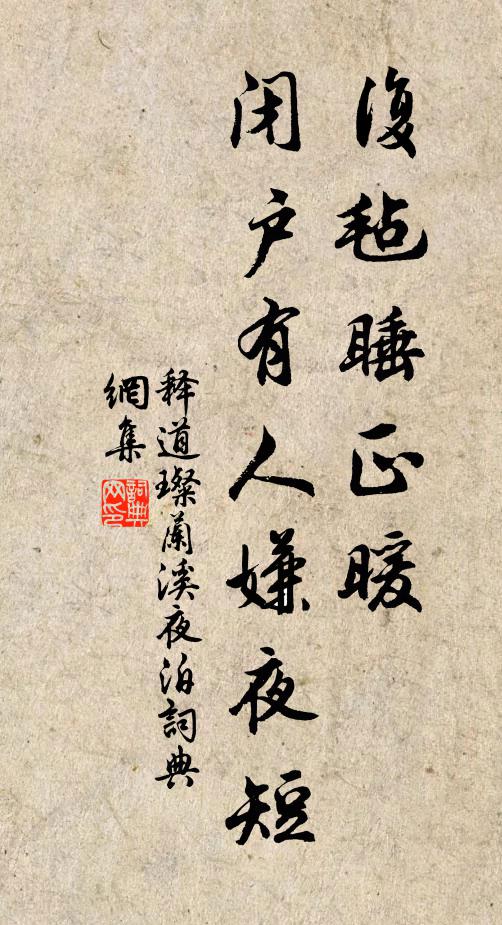 復毡睡正暖
闭户有人嫌夜短
释道璨蘭溪夜泊詞典
網集
詞典
网印